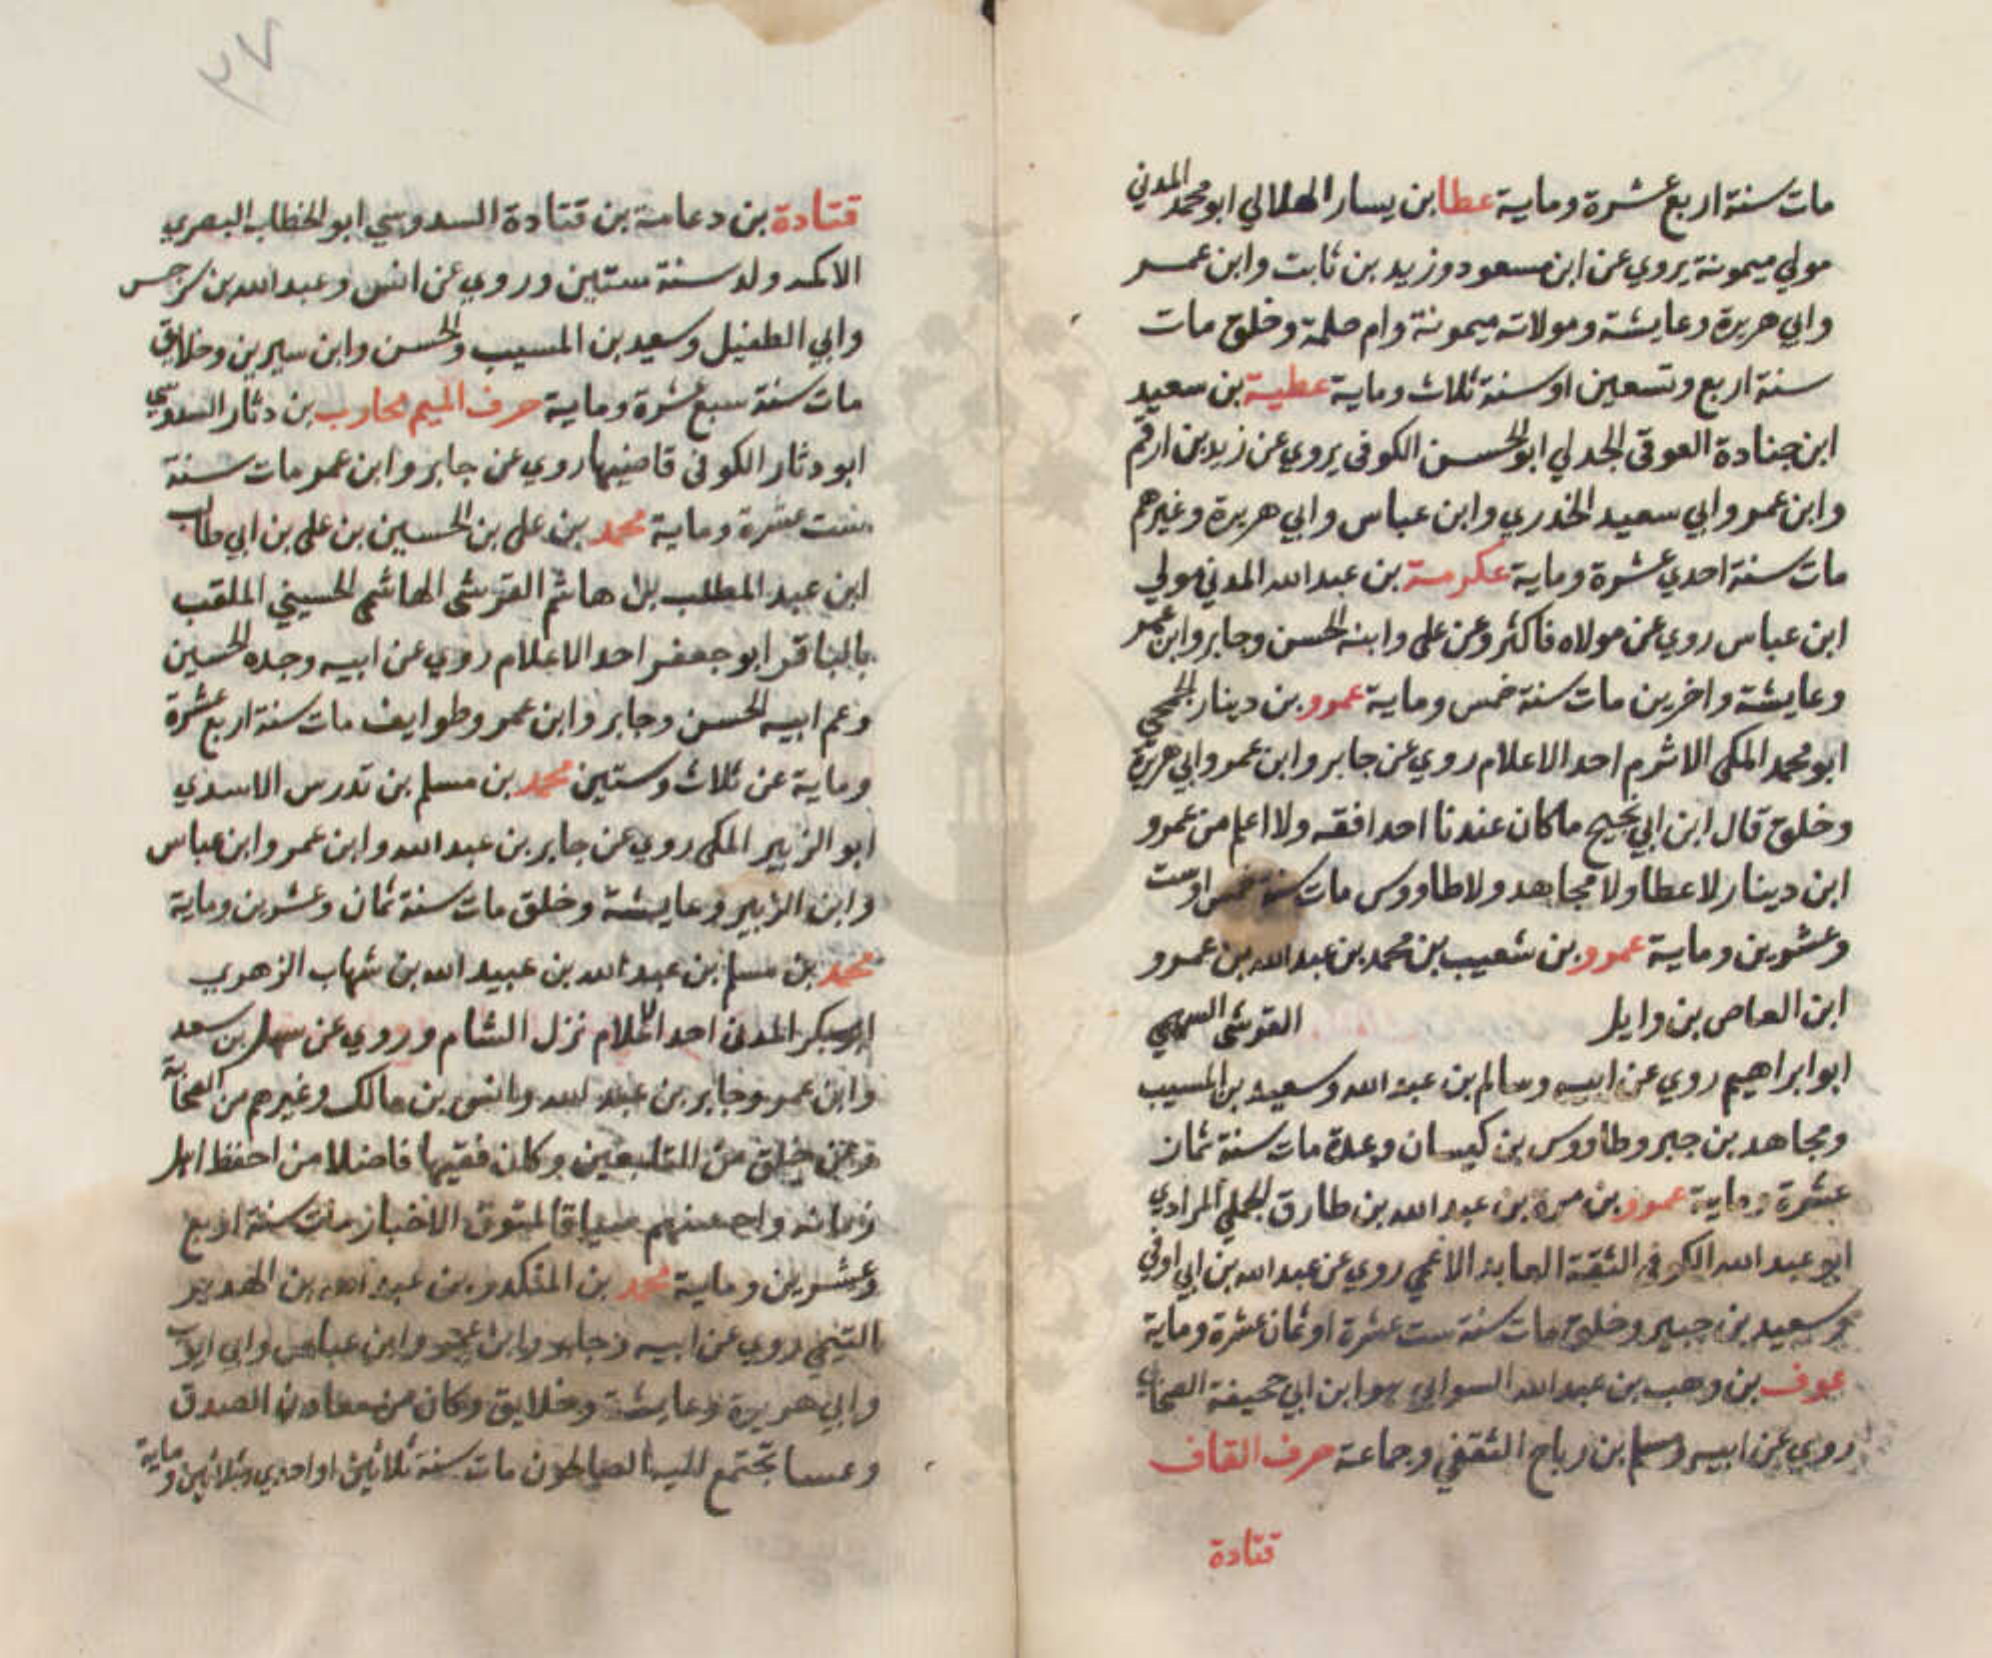 مات سنة اربع عشرة وماية عطا بن يسار الهلالي ابو محمد المدني
مولي ميمونة يروي عن ابن مسعود وزيد بن ثابت وابن عمر
وابي هريرة وعايشة ومولاته ميمونة وام سلمة وخلق مات
سنة اربع وتسعين او سنة ثلاث وماية عطية بن سعيد
ابن جنادة العوفي الجدلي ابو الحسن الكوفي يروي عن زيد بن ارقم
وابن عمر وابي سعيد الخدري وابن عباس وابي هريرة وغيرهم
مات سنة احدي عشرة وماية عكرمة بن عبد الله المدني مولي
ابن عباس روي عن مولاه فاكثر وعن علي وابنه الحسن وجابر وابن عمر
وعايشة واخرين مات سنة خمس وماية عمرو بن دينار الجمحي
ابو محمد المكي الاثرم احد الاعلام روي عن جابر وابن عمر وابي هريرة
وخلق قال ابن ابي نجيح ما كان عندنا احد افقه ولا اعلم من عمرو
ابن دينار لا عطا ولا مجاهد ولا طاووس مات سنة خمس او ست
وعشرين وماية عمرو بن شعيب بن محمد بن عبد الله بن عمرو
ابن العاص بن وايل القرشي السهمي
ابو ابراهيم روي عن ابيه وسالم بن عبد الله وسعيد بن المسيب
ومجاهد بن جبر وطاووس بن كيسان وعدة مات سنة ثمان
عشرة وماية عمرو بن مرة بن عبد الله بن طارق الجملي المرادي
ابو عبد الله الكوفي الثقة العابد الاعمي روي عن عبد الله بن ابي اوفي
وسعيد بن جبير وخلق مات سنة ست عشرة او ثمان عشرة وماية
عوف بن وهب بن عبد الله السوايي هو ابن ابي جحيفة الصحابي
روي عن ابيه ومسلم بن رباح الثقفي وجماعة حرف القاف
قتادة
٣٧
قتادة بن دعامة بن قتادة السدوسي ابو الخطاب البصري
الاكمه ولد سنة ستين وروي عن انس وعبد الله بن سرجس
وابي الطفيل وسعيد بن المسيب والحسن وابن سيرين وخلايق
مات سنة سبع عشرة وماية حرف الميم محارب بن دثار السدوسي
ابو دثار الكوفي قاضيها روي عن جابر وابن عمر مات سنة
ست عشرة وماية محمد بن علي بن الحسين بن علي بن ابي طالب
ابن عبد المطلب بن هاشم القرشي الهاشمي الحسيني الملقب
بالباقر ابو جعفر احد الاعلام روي عن ابيه وجده الحسين
وعم ابيه الحسن وجابر وابن عمر وطوايف مات سنة اربع عشرة
وماية عن ثلاث وستين محمد بن مسلم بن تدرس الاسدي
ابو الزبير المكي روي عن جابر بن عبد الله وابن عمر وابن عباس
وابن الزبير وعايشة وخلق مات سنة ثمان وعشرين وماية
محمد بن مسلم بن عبد الله بن عبيد الله بن شهاب الزهري
ابو بكر المدني احد الاعلام نزل الشام وروي عن سهل بن سعد
وابن عمر وجابر بن عبد الله وانس بن مالك وغيرهم من الصحابة
وعن خلق من التابعين وكان فقيها فاضلا من احفظ اهل
زمانه واحسنهم سياقا لمتون الاخبار مات سنة اربع
وعشرين وماية محمد بن المنكدر بن عبد الله بن الهدير
التيمي روي عن ابيه وجابر وابن عمر وابن عباس وابي ايوب
وابي هريرة وعايشة وخلايق وكان من معادن الصدق
تجتمع اليه الصالحون مات سنة ثلاثين او احدي وثلاثين وماية